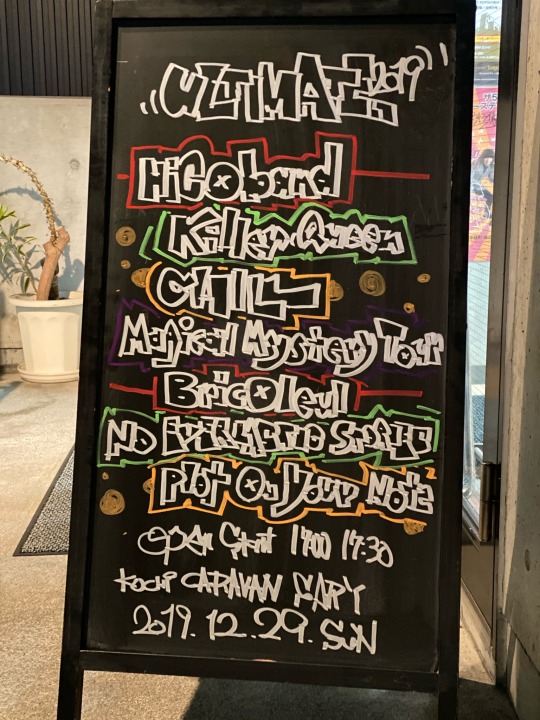 ULTIMATE 2019
HiCoband
Killer Queen
GAILL
Magical Mystery Tour
Bricoleul
NO
Plot On Your Note
OPEN Start 1700 17:30
Kochi CARAVAN SARY
2019.12.29.SUN